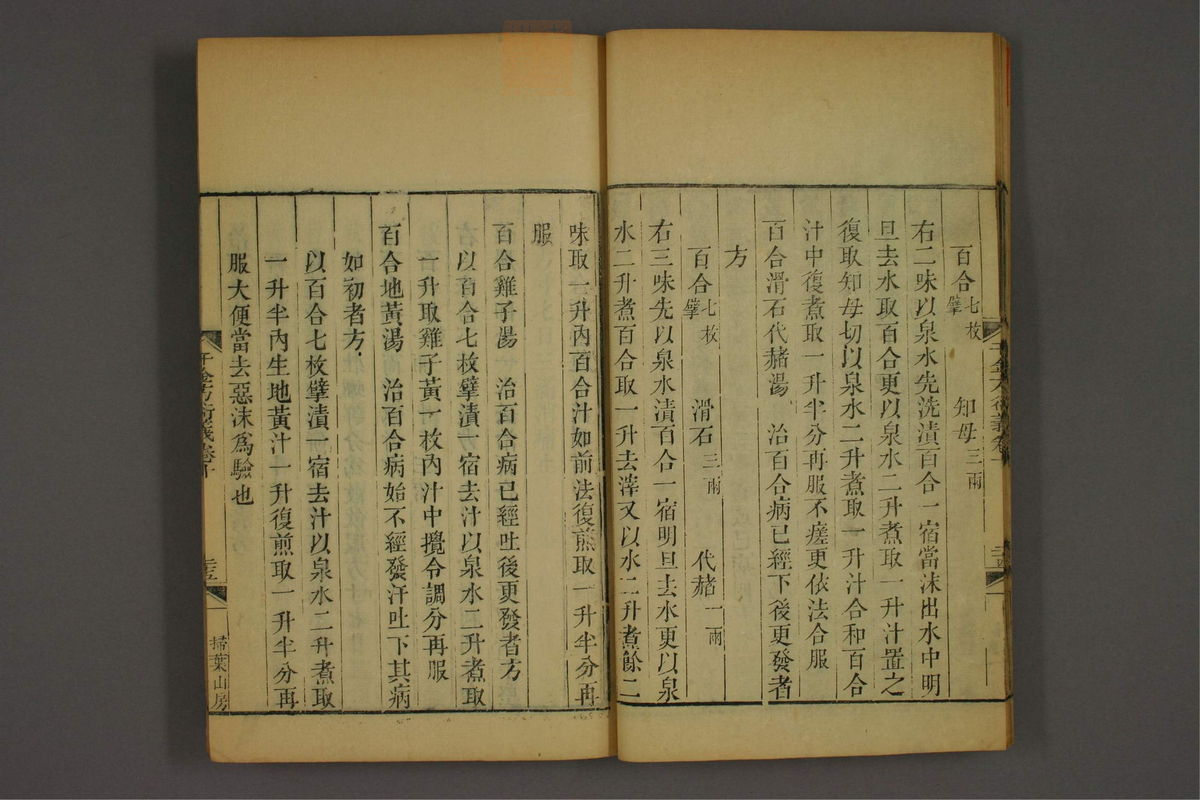 百合七枚擘　知母三兩
右二味以泉水先洗漬百合一宿當沫出水中明
旦去水取百合更以泉水二升煮取一升汁置之
復取知母切以泉水二升煮取一升汁合和百合
汁中復煮取一升半分再服不瘥更依法合服
百合滑石代赭湯　治百合病已經下後更發者
方
百合七枚擘　滑石三兩　代赭一兩
右三味先以泉水漬百合一宿明旦去水更以泉
水二升煮百合取一升去滓又以水二升煮餘二
味取一升內百合汁如前法復煎取一升半分再
服
百合雞子湯　治百合病已經吐後更發者方
以百合七枚擘漬一宿去汁以泉水二升煮取
一升取雞子黃一枚內汁中攪令調分再服
百合地黃湯　治百合病始不經發汗吐下其病
如初者方
以百合七枚擘漬一宿去汁以泉水二升煮取
一升半內生地黃汁一升復煎取一升半分再
服大便當去惡沫爲驗也
千金方衍義卷十　三五
掃葉山房